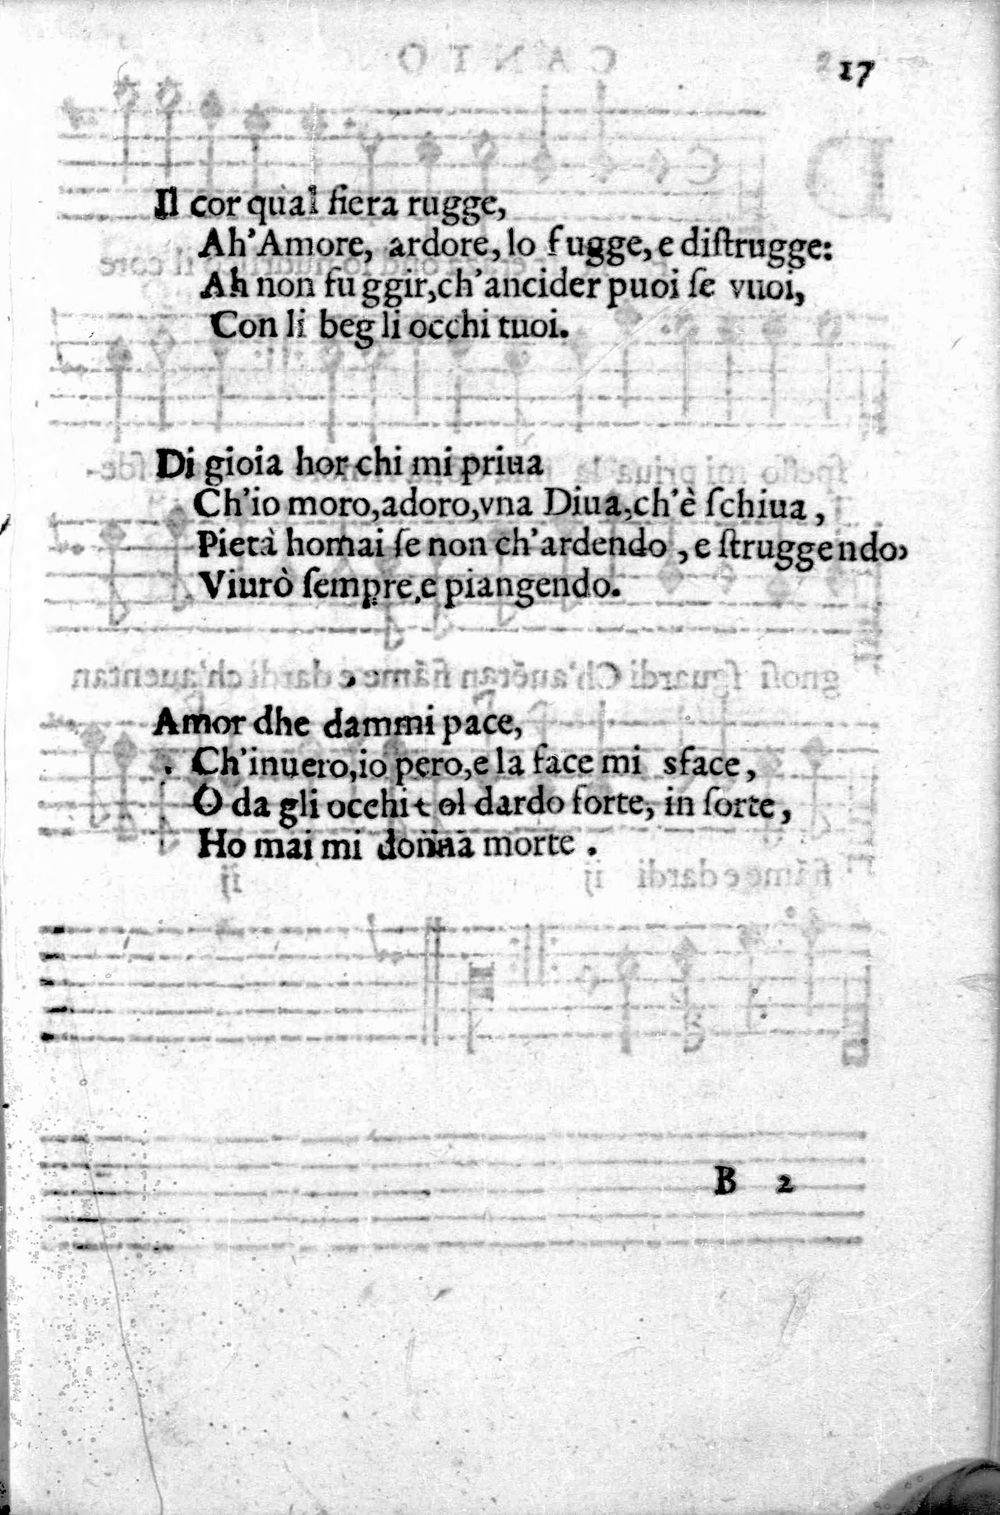 17
Il cor qual fiera rugge,
Ah'Amore, ardore, lo fugge, e diſtrugge:
Ah non fuggir,ch'ancider puoi ſe vuoi,
Con li begli occhi tuoi.
Di gioia hor chi mi priua
Ch'io moro,adoro,vna Diua,ch'è ſchiua,
Pietà homai ſe non ch'ardendo, e ſtruggendo,
Viurò ſempre,e piangendo.
Amor dhe dammi pace,
Ch'inuero,io pero,e la face mi sface,
O da gli occhi tol dardo forte, in ſorte,
Ho mai mi donna morte.
B 2